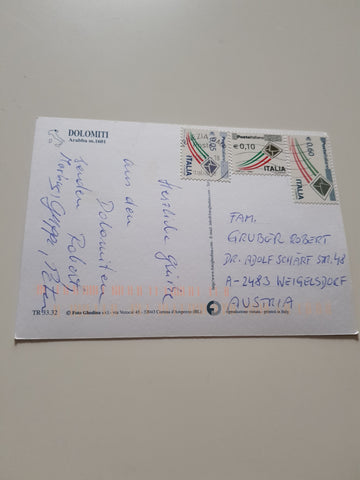 DOLOMITI
Arabba m.1601
Herzliche Grüße
aus den
Dolomiten
senden Robert,
Posteitaliane
€0,05
ITALIA
Posteitaliane
€0,10
ITALIA
Posteitaliane
€0,60
ITALIA
FAM.
GRUBER ROBERT
DR. ADOLF SCHÄRF STR. 48
A-2483 WEIGELSDORF
AUSTRIA
TR 93.32
© Foto Ghedina s.r.l. - via Verocai 45 - 32043 Cortina d'Ampezzo (BL)
riproduzione vietata - printed in Italy